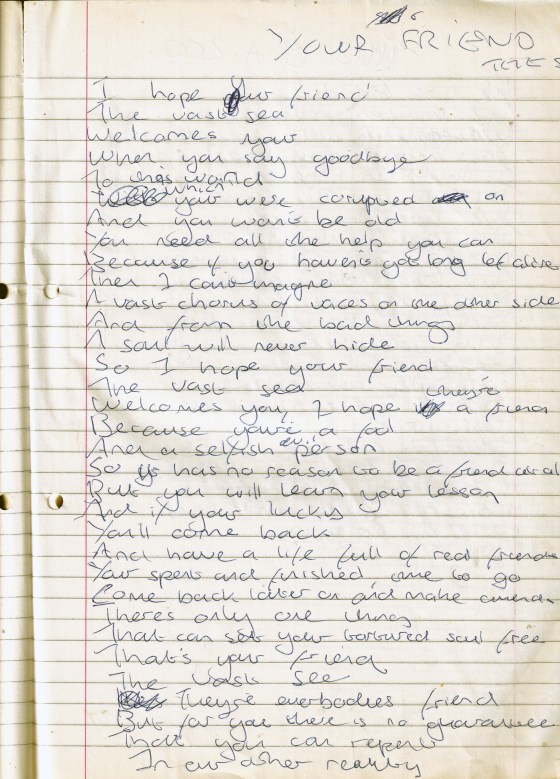 YOUR FRIEND
I hope your friend
The vast sea
Welcomes your
When you say goodbye
To this world
which you were on
And you won't be old
You need all the help you can
Because if you haven't got long left alive
Then I can't imagine
A vast chorus of voices on the other side
And from the bad things
A soul will never hide
So I hope your friend
The vast sea
Welcomes you, I hope they're a friend
Because you're a fool
And a selfish evil person
So has no reason to be a friend at all
But you will learn your lesson
And if your lucky
You'll come back
And have a life full of real friends
Your spent and finished, time to go
Come back later on and make amends
There's only one thing
That can set your tortured soul free
That's your friend
The vast see
They're everbodies friend
But for you there is no guarantee
That you can repent
In our other reality